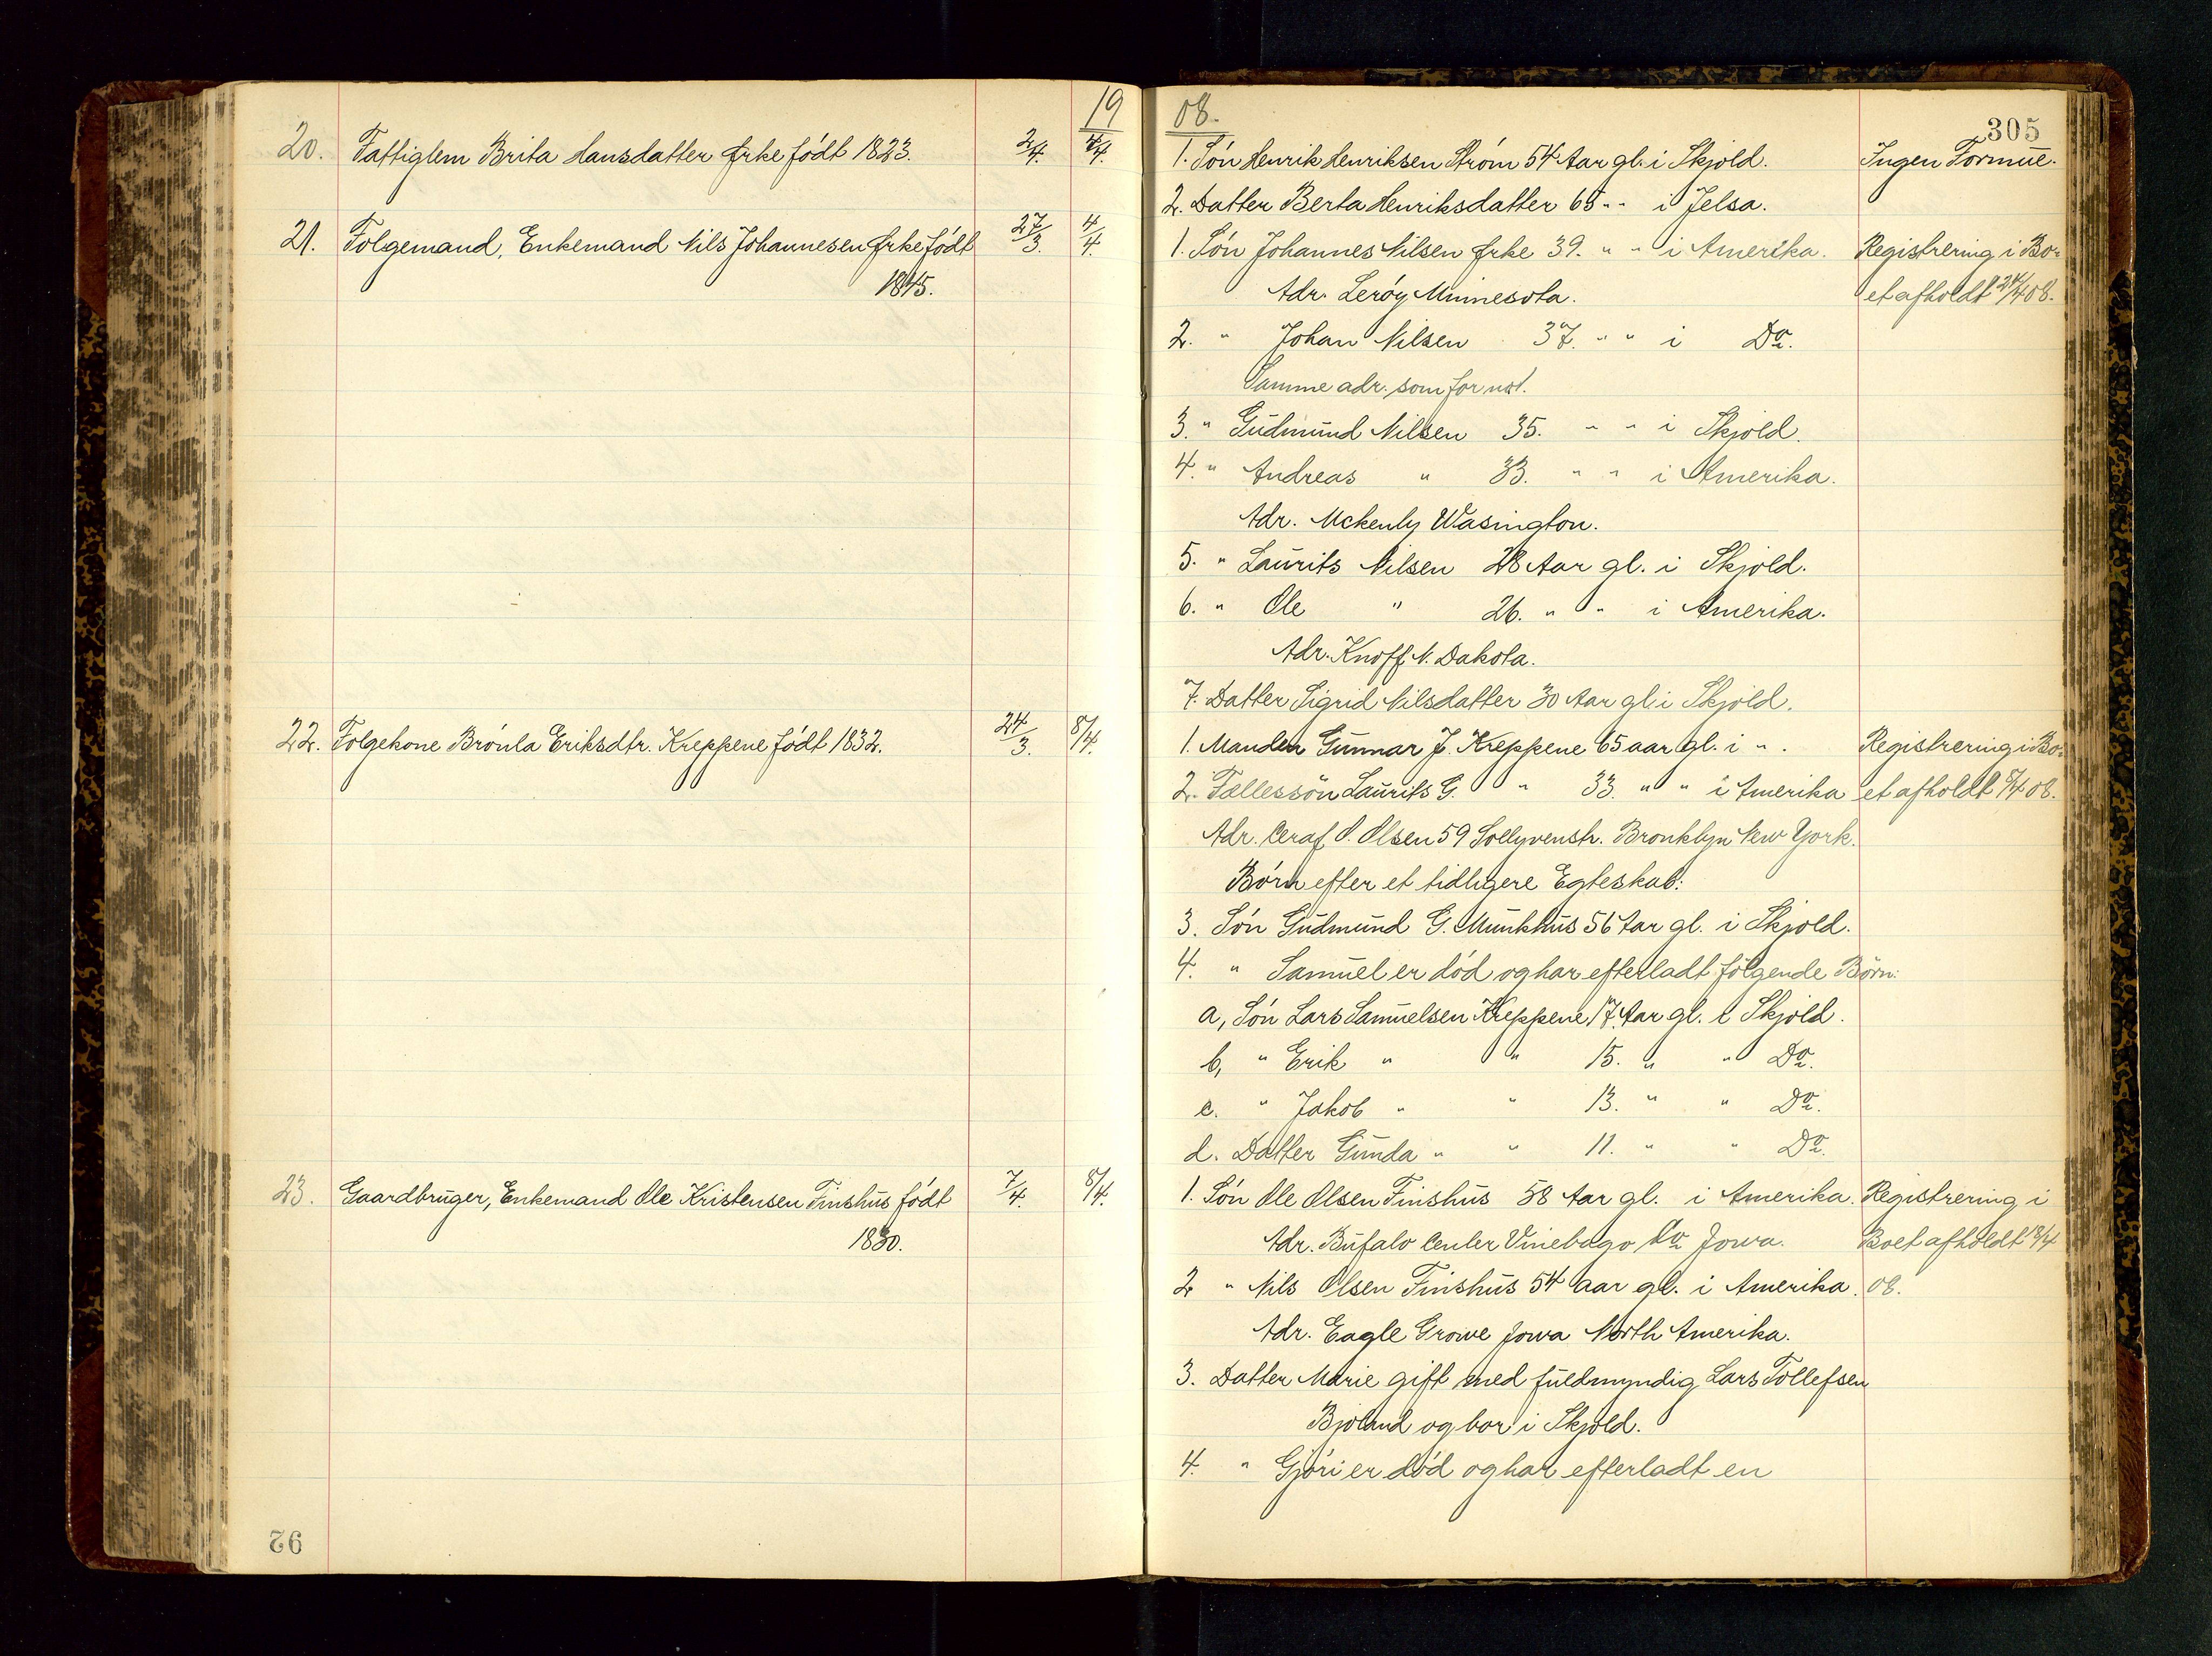 19
08.
305
20. Fattiglem Brita Hansdatter Ørke födt 1823. 2/4. 4/4. 1. Sön Henrik Henriksen Ström 54 Aar gl. i Skjold. Ingen Formue.
2. Datter Berta Henriksdatter 65 " " i Jelsa.
21. Folgemand, Enkemand Nils Johannesen Ørke födt 27/3. 4/4. 1. Sön Johannes Nilsen Ørke 39. " " i Amerika. Registrering i Bo-
1845. Adr. Leröy Minnesota. et afholdt 24/4 08.
2. " Johan Nilsen 37. " " i Do.
Samme adr. som for no 1.
3. " Gudmund Nilsen 35. " " i Skjold.
4. " Andreas " 33. " " i Amerika.
Adr. Mckenly Wasington.
5. " Laurits Nilsen 28 Aar gl. i Skjold.
6. " Ole " 26. " " i Amerika.
Adr. Knoff N. Dakota.
7. Datter Sigrid Nilsdatter 30 Aar gl. i Skjold.
22. Folgekone Brönla Eriksdtr. Kreppene födt 1832. 24/3. 8/4. 1. Manden Gunnar J. Kreppene 65 aar gl. i " . Registrering i Bo-
2. Fællessön Laurits G. " 33. " " i Amerika et afholdt 8/4 08.
Adr. Ceraf O. Olsen 59 Sollyvenstr. Bronklyn New York.
Börn efter et tidligere Egteskab:
3. Sön Gudmund G. Munkhus 56 Aar gl. i Skjold.
4. " Samuel er död og har efterladt fölgende Börn:
a, Sön Lars Samuelsen Kreppene 17. Aar gl. i Skjold.
b, " Erik " " 15. " " Do.
c. " Jakob " " 13. " " Do.
d. Datter Gunda " " 11. " " Do.
23. Gaardbruger, Enkemand Ole Kristensen Finshus födt 7/4. 8/4. 1. Sön Ole Olsen Finshus 58 Aar gl. i Amerika. Registrering i
1830. Adr. Bufalo Center Vinebago Co Jowa. Boet afholdt 13/4
2 " Nils Olsen Finshus 54 aar gl. i Amerika. 08.
Adr. Eagle Growe Jowa North Amerika.
3. Datter Marie gift med fuldmyndig Lars Tollefsen
Bjoland og bor i Skjold.
4. " Gjöri er död og har efterladt en
92